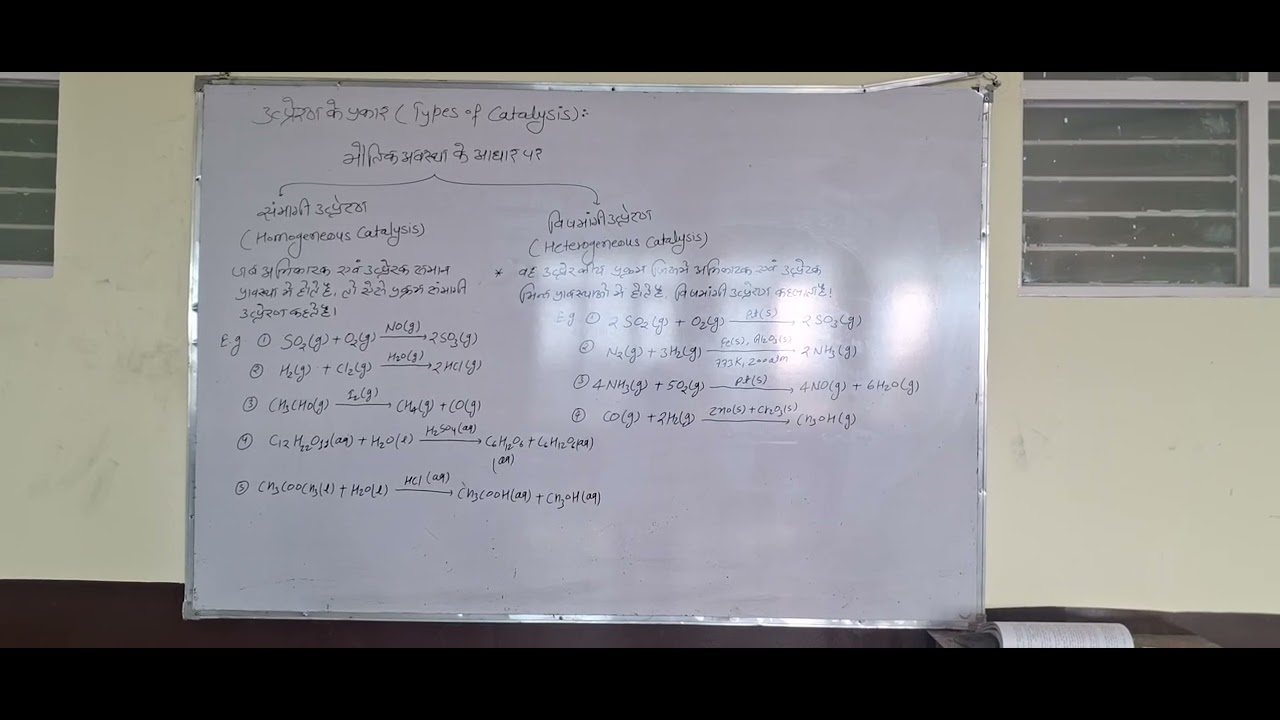 उत्प्रेरण के प्रकार (Types of Catalysis):
भौतिक अवस्था के आधार पर
संमागी उत्प्रेरण
(Homogeneous Catalysis)
जब अभिकारक एवं उत्प्रेरक समान
प्रावस्था में होते है, तो ऐसे प्रक्रम संमागी
उत्प्रेरण कहते है।
E.g ① SO2(g) + O2(g) NO(g) → 2SO3(g)
② H2(g) + Cl2(g) H2O(g) → 2HCl(g)
③ CH3CHO(g) I2(g) → CH4(g) + CO(g)
④ C12H22O11(aq) + H2O(l) H2SO4(aq) → C6H12O6 + C6H12O6(aq)
(aq)
⑤ CH3COOCH3(l) + H2O(l) HCl(aq) → CH3COOH(aq) + CH3OH(aq)
विषमांगी उत्प्रेरण
(Heterogeneous Catalysis)
* वह उत्प्रेरकीय प्रक्रम जिसमें अभिकारक एवं उत्प्रेरक
भिन्न प्रावस्थाओं में होते है, विषमांगी उत्प्रेरण कहलाते है!
E.g ① 2SO2(g) + O2(g) Pt(s) → 2SO3(g)
② N2(g) + 3H2(g) Fe(s), Al2O3(s) 773K, 200atm → 2NH3(g)
③ 4NH3(g) + 5O2(g) Pt(s) → 4NO(g) + 6H2O(g)
④ CO(g) + 2H2(g) ZnO(s) + Cr2O3(s) → CH3OH(g)